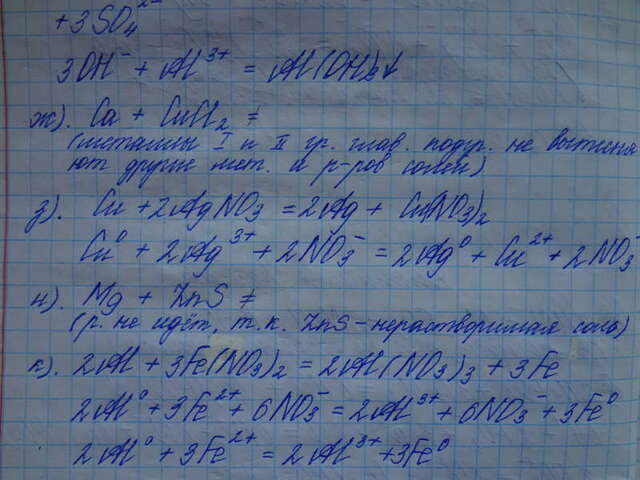 + 3SO₄²⁻
3OH⁻ + Al³⁺ = Al(OH)₃↓
ж). Ca + CuCl₂ ≠
(металлы I и II гр. глав. подгр. не вытесня
ют другие мет. и р-ров солей)
з). Cu + 2AgNO₃ = 2Ag + Cu(NO₃)₂
Cu⁰ + 2Ag³⁺ + 2NO₃⁻ = 2Ag⁰ + Cu²⁺ + 2NO₃⁻
и). Mg + ZnS ≠
(р. не идёт, т.к. ZnS - нерастворимая соль)
к). 2Al + 3Fe(NO₃)₂ = 2Al(NO₃)₃ + 3Fe
2Al⁰ + 3Fe²⁺ + 6NO₃⁻ = 2Al³⁺ + 6NO₃⁻ + 3Fe⁰
2Al⁰ + 3Fe²⁺ = 2Al³⁺ + 3Fe⁰